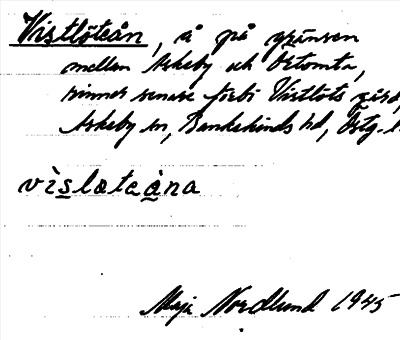 Vistlötån, å på gränsen
mellan Askeby och Örtomta,
rinner senare förbi Vistlöts gård,
Askeby sn, Bankekinds hd, Östg.
vìslǝteåna
Maja Nordlund 1945